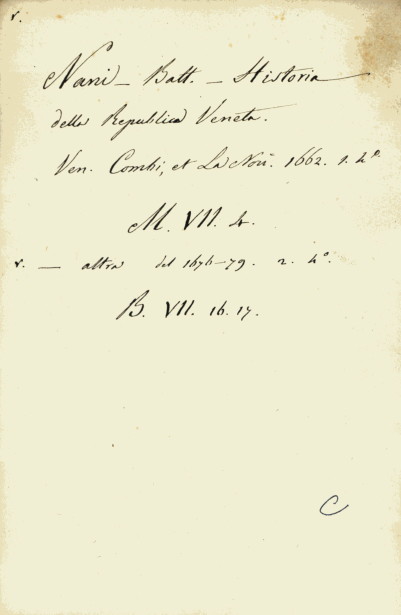 r.
Nani – Batt. – Historia
della Republica Veneta.
Ven. Combi, et La Noù. 1662. 1. 4.°
M. VII. 4.
r. — altra del 1676–79. 2. 4.°
B. VII. 16. 17.
C